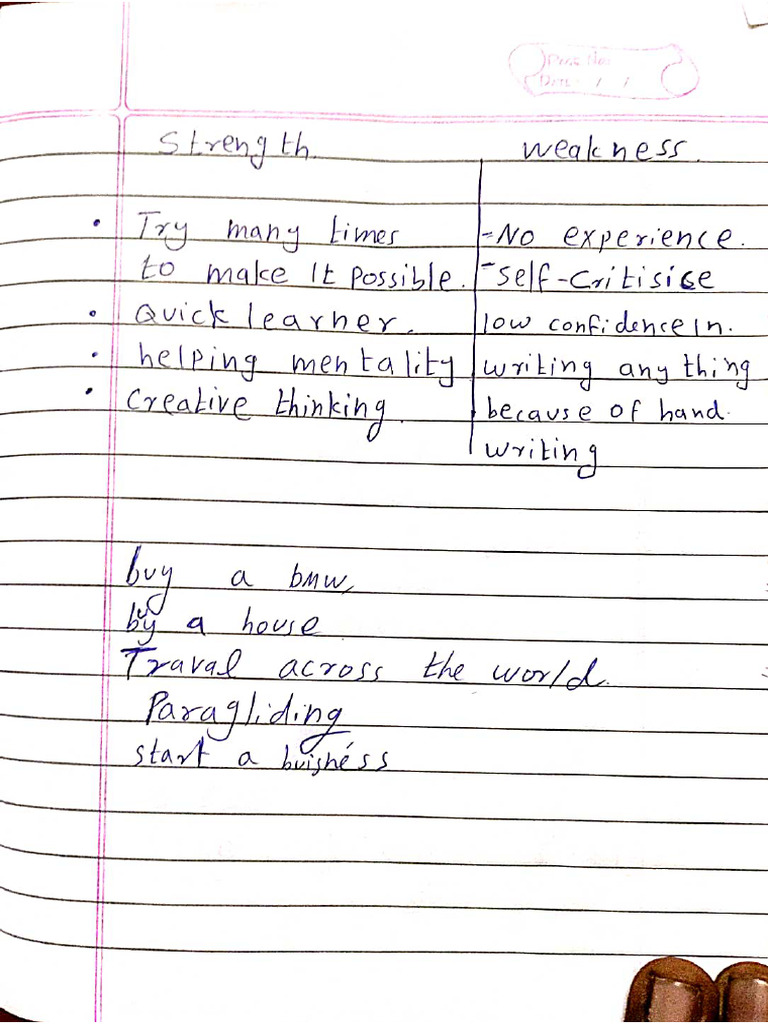 Page No:
Date: / /
Strength. weakness.
• Try many times
to make It possible.
• Quick learner.
• helping mentality
• Creative thinking.
-No experience.
-Self-Critisise
low confidence In.
writing any thing
because of hand.
writing
buy a bmw,
buy a house
Traval across the world.
Paragliding
start a buisness